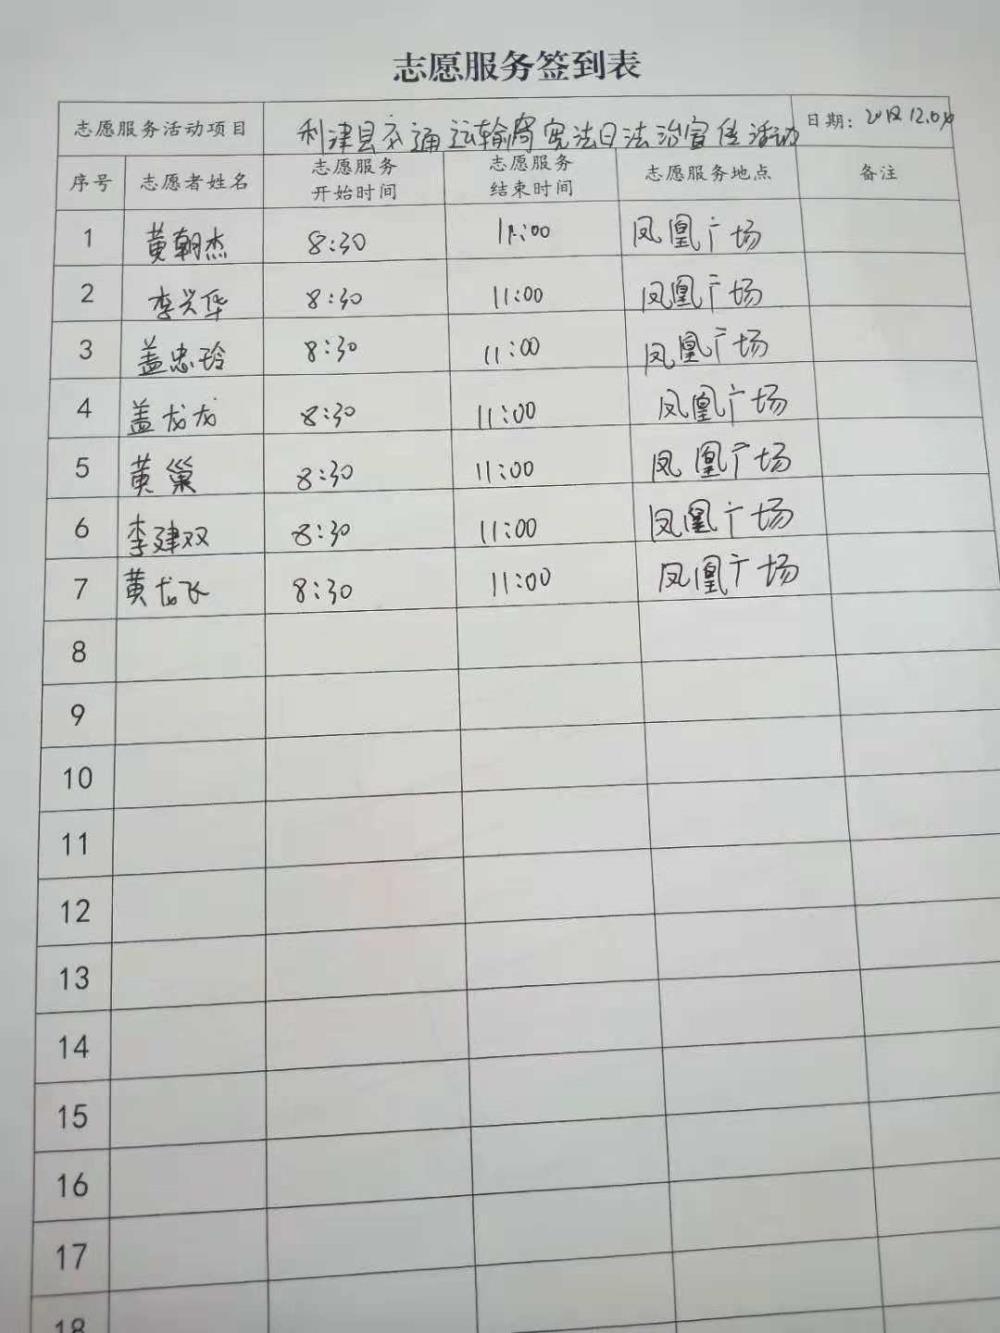 志愿服务签到表
志愿服务活动项目 利津县交通运输局宪法日法治宣传活动 日期：
序号 志愿者姓名 志愿服务开始时间 志愿服务结束时间 志愿服务地点 备注
1 黄朝杰 8:30 11:00 凤凰广场
2 李兴华 8:30 11:00 凤凰广场
3 盖忠玲 8:30 11:00 凤凰广场
4 盖龙龙 8:30 11:00 凤凰广场
5 黄巢 8:30 11:00 凤凰广场
6 李建双 8:30 11:00 凤凰广场
7 黄龙飞 8:30 11:00 凤凰广场
8
9
10
11
12
13
14
15
16
17
18